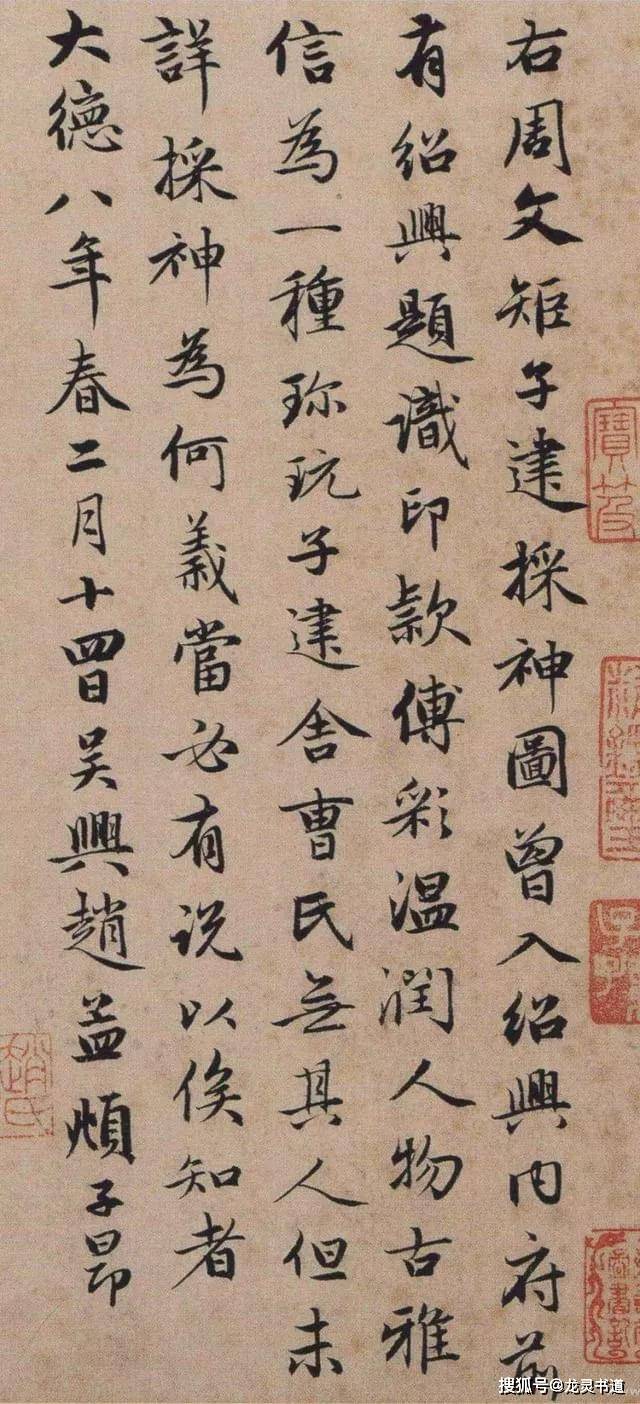 右周文矩子建採神圖曾入紹興内府前
有紹興題識印款傅彩温潤人物古雅
信為一種珎玩子建舍曹氏無其人但未
詳採神為何義當必有说以俟知者
大德八年春二月十四日吴興趙孟頫子昂
寶苑
趙氏
搜狐号@龙灵书道